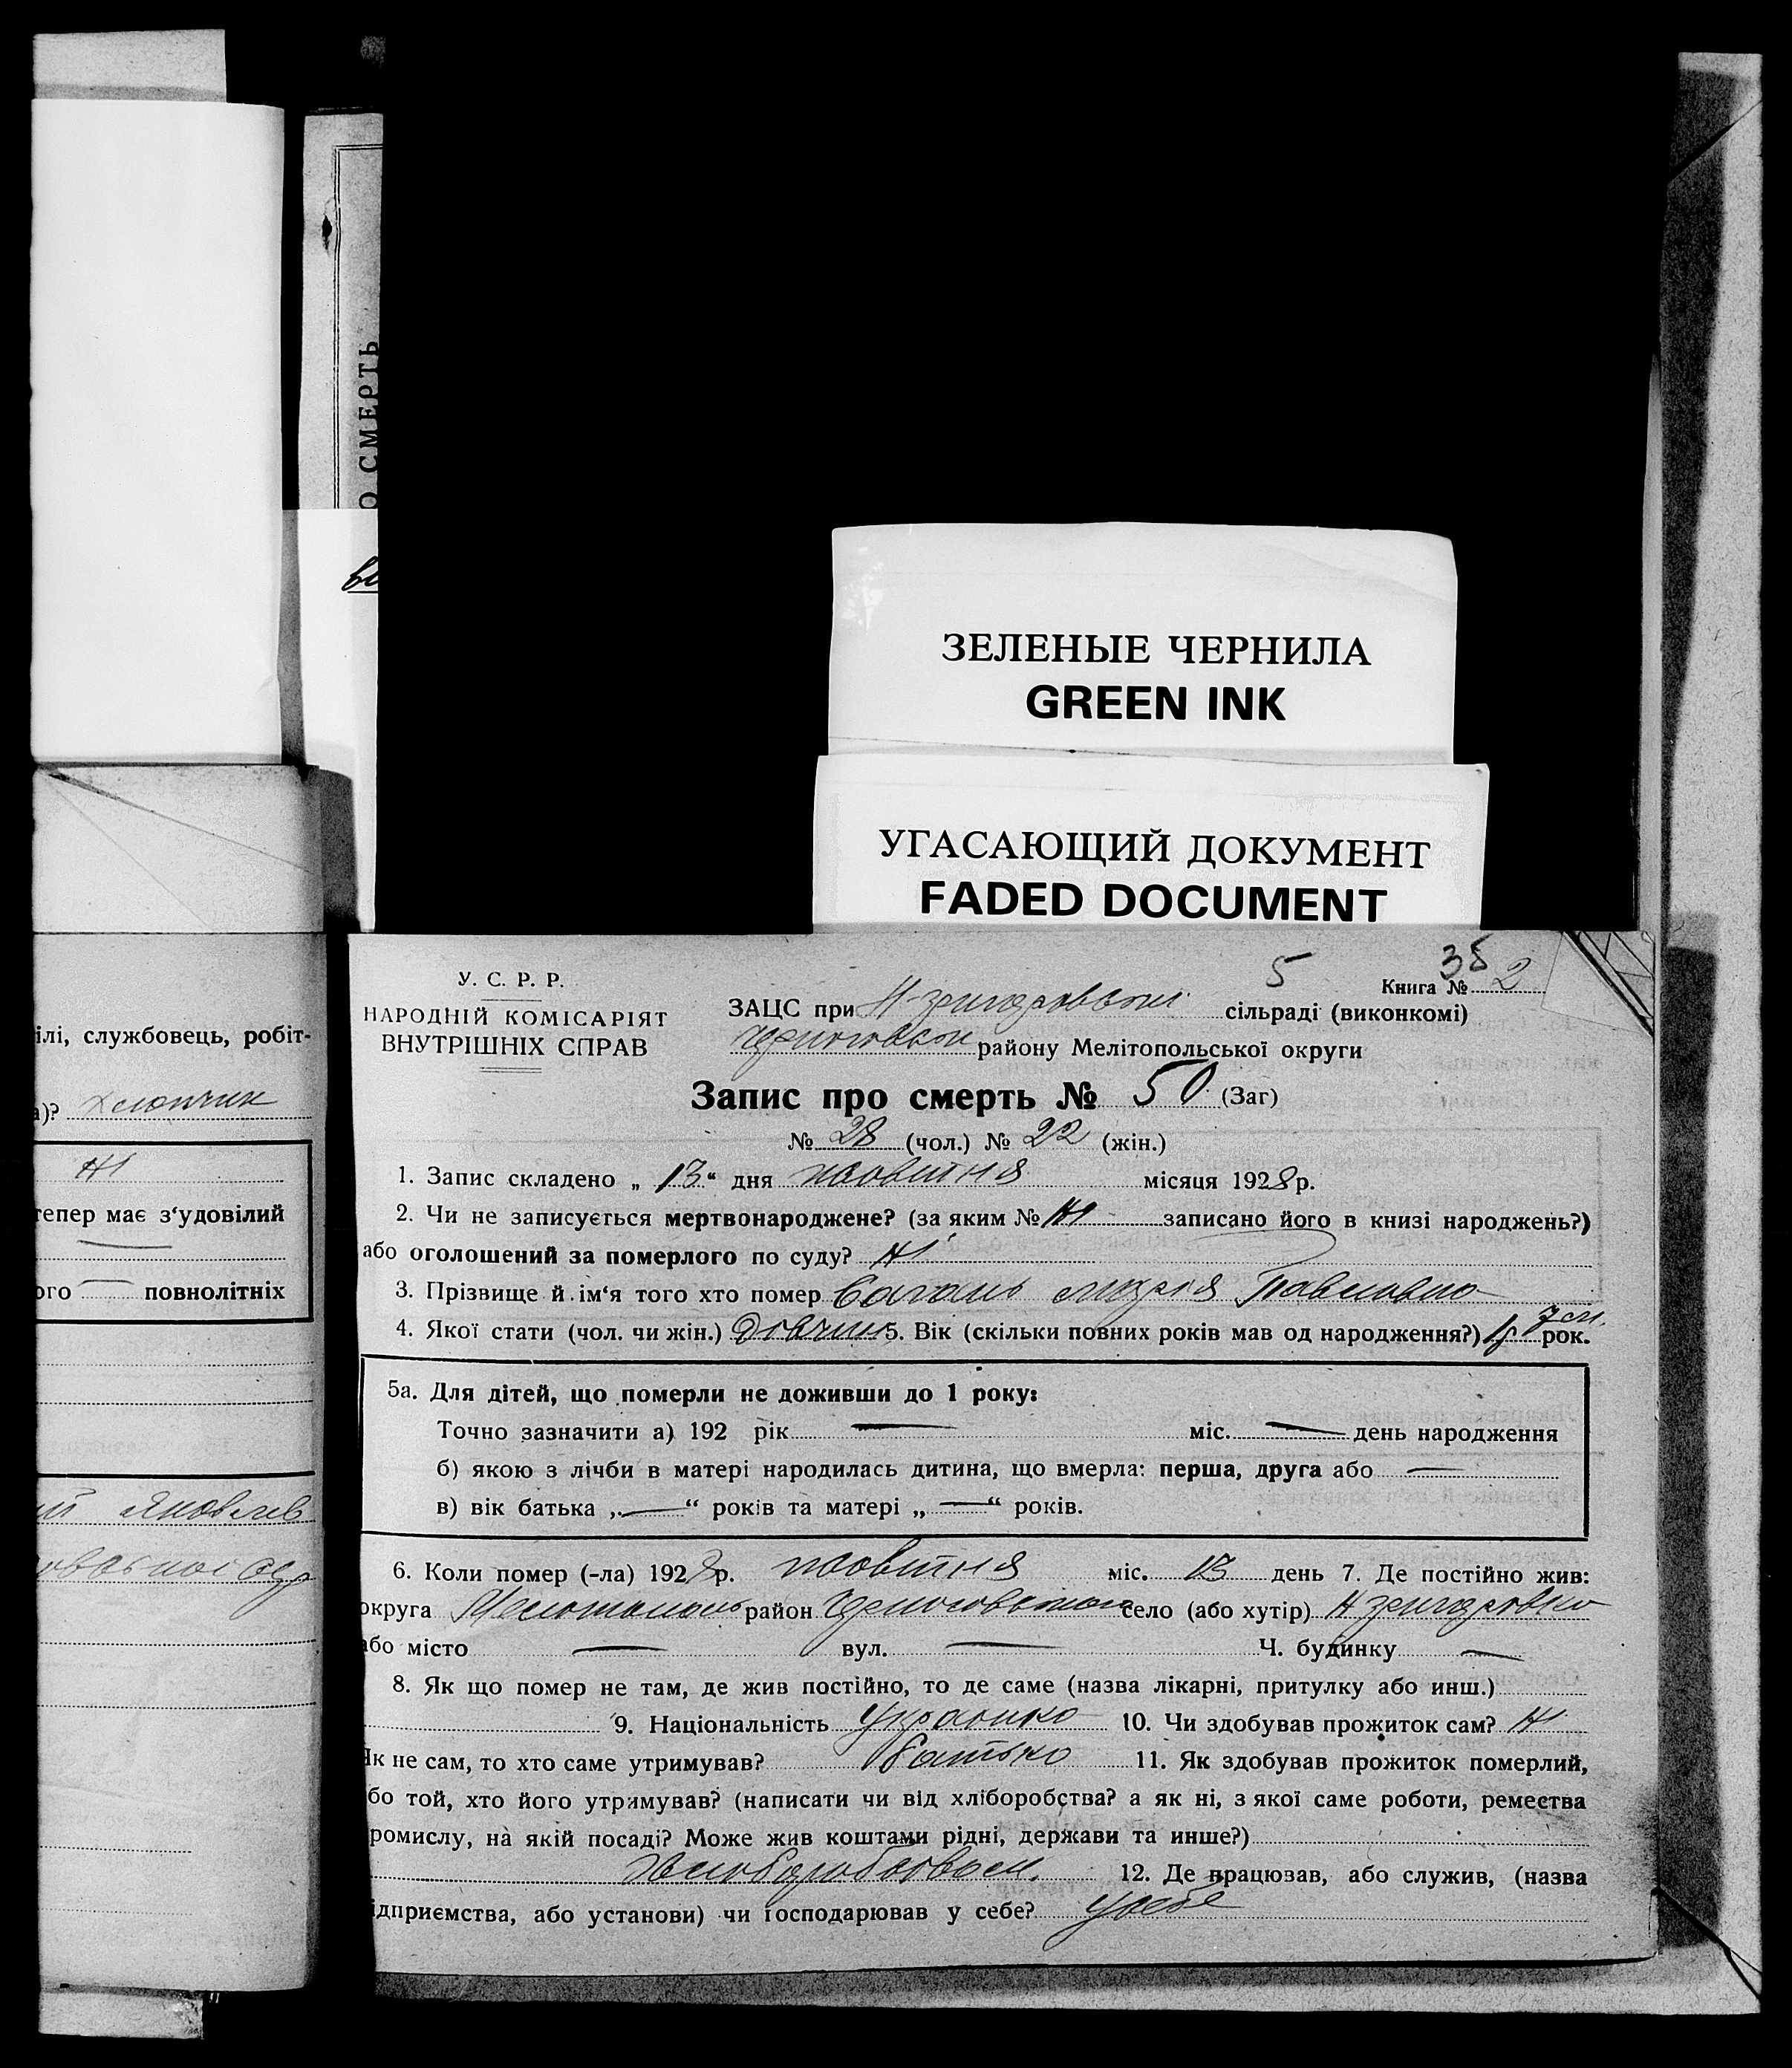 О СМЕРТЬ
ЗЕЛЕНЫЕ ЧЕРНИЛА
GREEN INK
УГАСАЮЩИЙ ДОКУМЕНТ
FADED DOCUMENT
ілі, службовець, робіт-
а)? хлопчик
Ні
тепер має з‘удовілий
ого — повнолітніх
У. С. Р. Р.
НАРОДНІЙ КОМІСАРІЯТ
ВНУТРІШНІХ СПРАВ
5
35
Книга № 2
ЗАЦС при сільраді (виконкомі)
району Мелітопольської округи
Запис про смерть № 50 (Заг)
№ 28 (чол.) № 22 (жін.)
1. Запис складено „ 13 “ дня жовтня місяця 1928 р.
2. Чи не записується мертвонароджене? (за яким № Ні записано його в книзі народжень?)
або оголошений за померлого по суду? Ні
3. Прізвище й ім‘я того хто помер Марія Павловна
4. Якої стати (чол. чи жін.) 5. Вік (скільки повних років мав од народження?) 1 р 7 м. рок.
5а. Для дітей, що померли не доживши до 1 року:
Точно зазначити а) 192 рік — міс. — день народження
б) якою з лічби в матері народилась дитина, що вмерла: перша, друга або —
в) вік батька „ — “ років та матері „ — “ років.
6. Коли помер (-ла) 1928 р. жовтня міс. 13 день 7. Де постійно жив:
округа район село (або хутір)
або місто — вул. — Ч. будинку —
8. Як що помер не там, де жив постійно, то де саме (назва лікарні, притулку або инш.)
9. Національність 10. Чи здобував прожиток сам? Ні
Як не сам, то хто саме утримував? батько 11. Як здобував прожиток померлий,
бо той, хто його утримував? (написати чи від хліборобства? а як ні, з якої саме роботи, ремества
ромислу, на якій посаді? Може жив коштами рідні, держави та инше?)
12. Де працював, або служив, (назва
ідприємства, або установи) чи господарював у себе? у себе